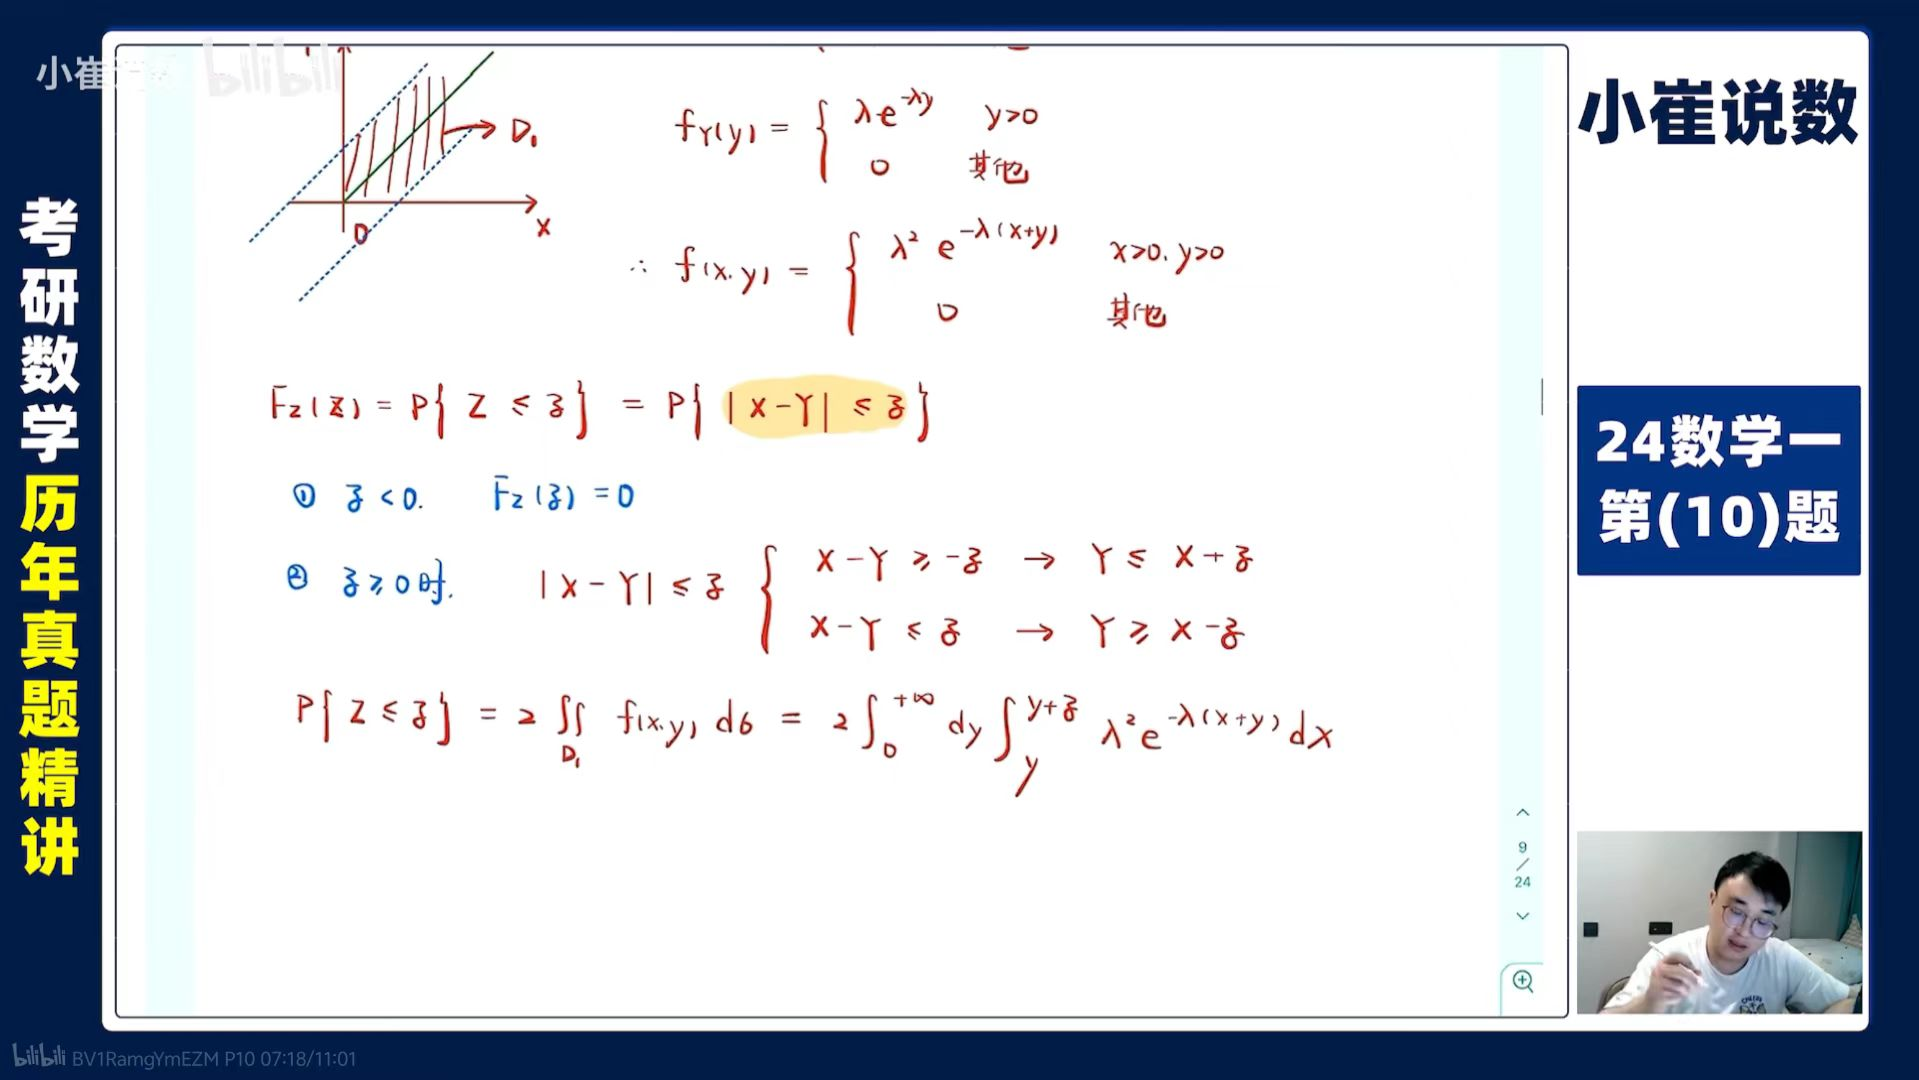 小崔说数 bilibili
小崔说数
考研数学历年真题精讲
24数学一
第(10)题
D₁
0
x
f_Y(y) = { λe^{-λy} y>0
0 其他
∴ f(x,y) = { λ² e^{-λ(x+y)} x>0, y>0
0 其他
F_Z(z) = P{ Z ≤ z } = P{ |X-Y| ≤ z }
① z < 0. F_Z(z) = 0
② z ≥ 0时. |X-Y| ≤ z { X-Y ≥ -z → Y ≤ X+z
X-Y ≤ z → Y ≥ X-z
P{ Z ≤ z } = 2 ∬_{D₁} f(x,y) dσ = 2 ∫_0^{+∞} dy ∫_y^{y+z} λ² e^{-λ(x+y)} dx
9
/
24
bilibili BV1RamgYmEZM P10 07:18/11:01